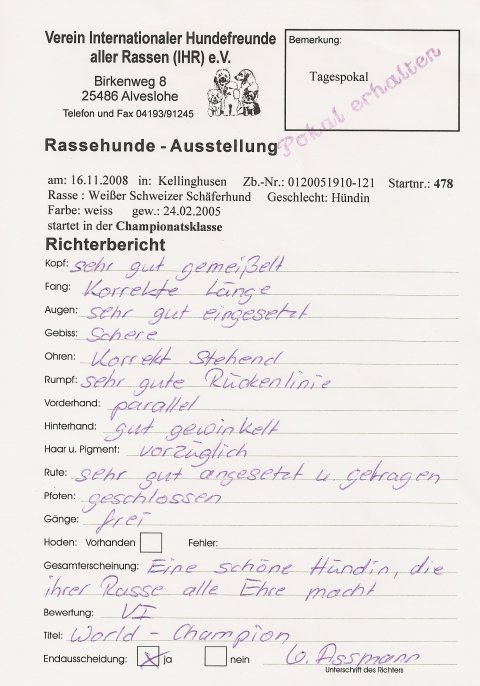 Verein Internationaler Hundefreunde
aller Rassen (IHR) e.V.
Birkenweg 8
25486 Alveslohe
Telefon und Fax 04193/91245
Bemerkung:
Tagespokal
Pokal erhalten
Rassehunde - Ausstellung
am: 16.11.2008 in: Kellinghusen Zb.-Nr.: 0120051910-121 Startnr.: 478
Rasse : Weißer Schweizer Schäferhund Geschlecht: Hündin
Farbe: weiss gew.: 24.02.2005
startet in der Championatsklasse
Richterbericht
Kopf: sehr gut gemeißelt
Fang: Korrekte Länge
Augen: sehr gut eingesetzt
Gebiss: Schere
Ohren: Korrekt Stehend
Rumpf: sehr gute Rückenlinie
Vorderhand: parallel
Hinterhand: gut gewinkelt
Haar u. Pigment: vorzüglich
Rute: sehr gut angesetzt u. getragen
Pfoten: geschlossen
Gänge: frei
Hoden: Vorhanden Fehler:
Gesamterscheinung: Eine schöne Hündin, die
ihrer Rasse alle Ehre macht
Bewertung: VI
Titel: World - Champion
Endausscheidung: X ja nein U. Assmann
Unterschrift des Richters